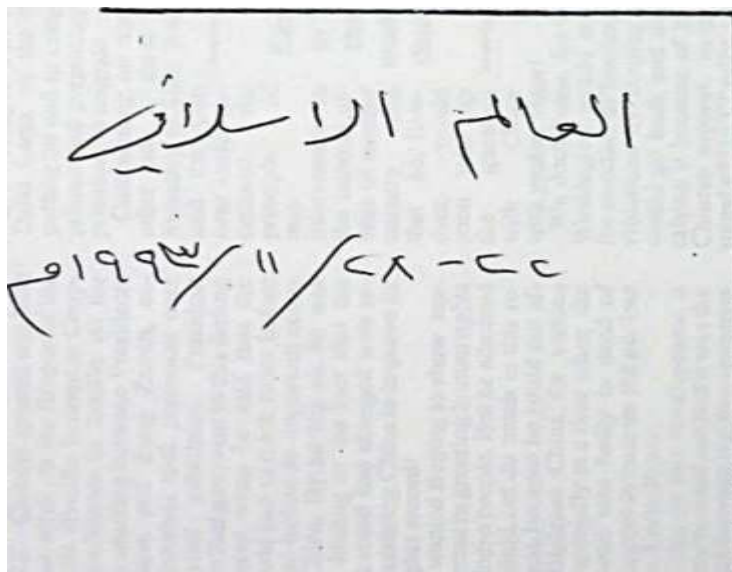 العالم الاسلامي
٢٢-٢٨/١١/١٩٩٣م